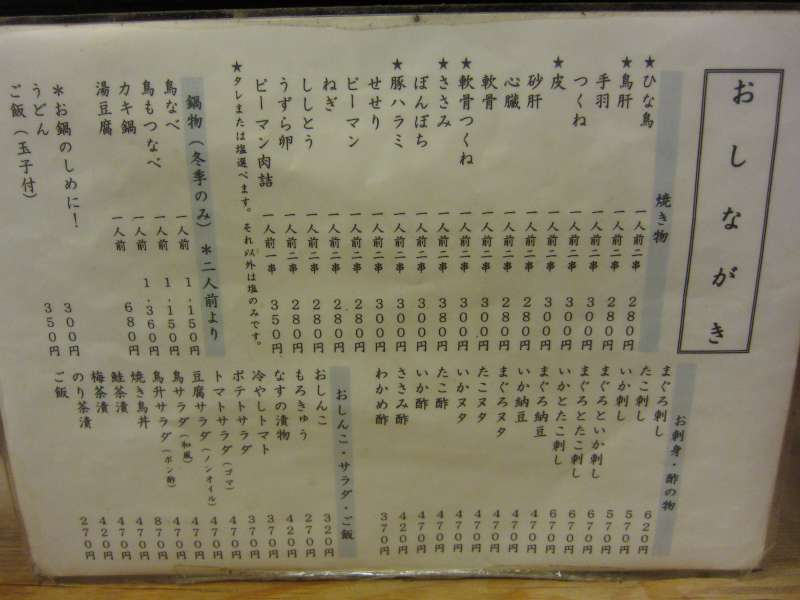 おしながき
焼き物
★ひな鳥 一人前二串 280円
★鳥肝 一人前二串 280円
手羽 一人前二串 300円
つくね 一人前二串 300円
★皮 一人前二串 300円
砂肝 一人前二串 280円
心臓 一人前二串 280円
軟骨 一人前二串 300円
★軟骨つくね 一人前二串 300円
★ささみ 一人前二串 380円
ぼんぼち 一人前二串 300円
★豚ハラミ 一人前二串 300円
せせり 一人前二串 300円
ピーマン 一人前二串 280円
ねぎ 一人前二串 280円
ししとう 一人前二串 280円
うずら卵 一人前二串 280円
ピーマン肉詰 一人前一串 350円
★タレまたは塩選べます。それ以外は塩のみです。
鍋物(冬季のみ) *二人前より
鳥なべ 一人前 1,150円
鳥もつなべ 一人前 1,150円
カキ鍋 一人前 1,360円
湯豆腐 一人前 680円
*お鍋のしめに!
うどん 300円
ご飯(玉子付) 350円
お刺身・酢の物
まぐろ刺し 620円
たこ刺し 570円
いか刺し 570円
まぐろといか刺し 670円
まぐろとたこ刺し 670円
いかとたこ刺し 670円
まぐろ納豆 470円
いか納豆 470円
まぐろヌタ 470円
たこヌタ 470円
いかヌタ 470円
たこ酢 470円
いか酢 470円
ささみ酢 420円
わかめ酢 370円
おしんこ・サラダ・ご飯
おしんこ 320円
もろきゅう 270円
なすの漬物 420円
冷やしトマト 370円
ポテトサラダ 370円
トマトサラダ(ゴマ) 470円
豆腐サラダ(ノンオイル) 470円
鳥サラダ(和風) 470円
鳥升サラダ(ポン酢) 470円
焼き鳥丼 870円
鮭茶漬 470円
梅茶漬 470円
のり茶漬 420円
ご飯 270円